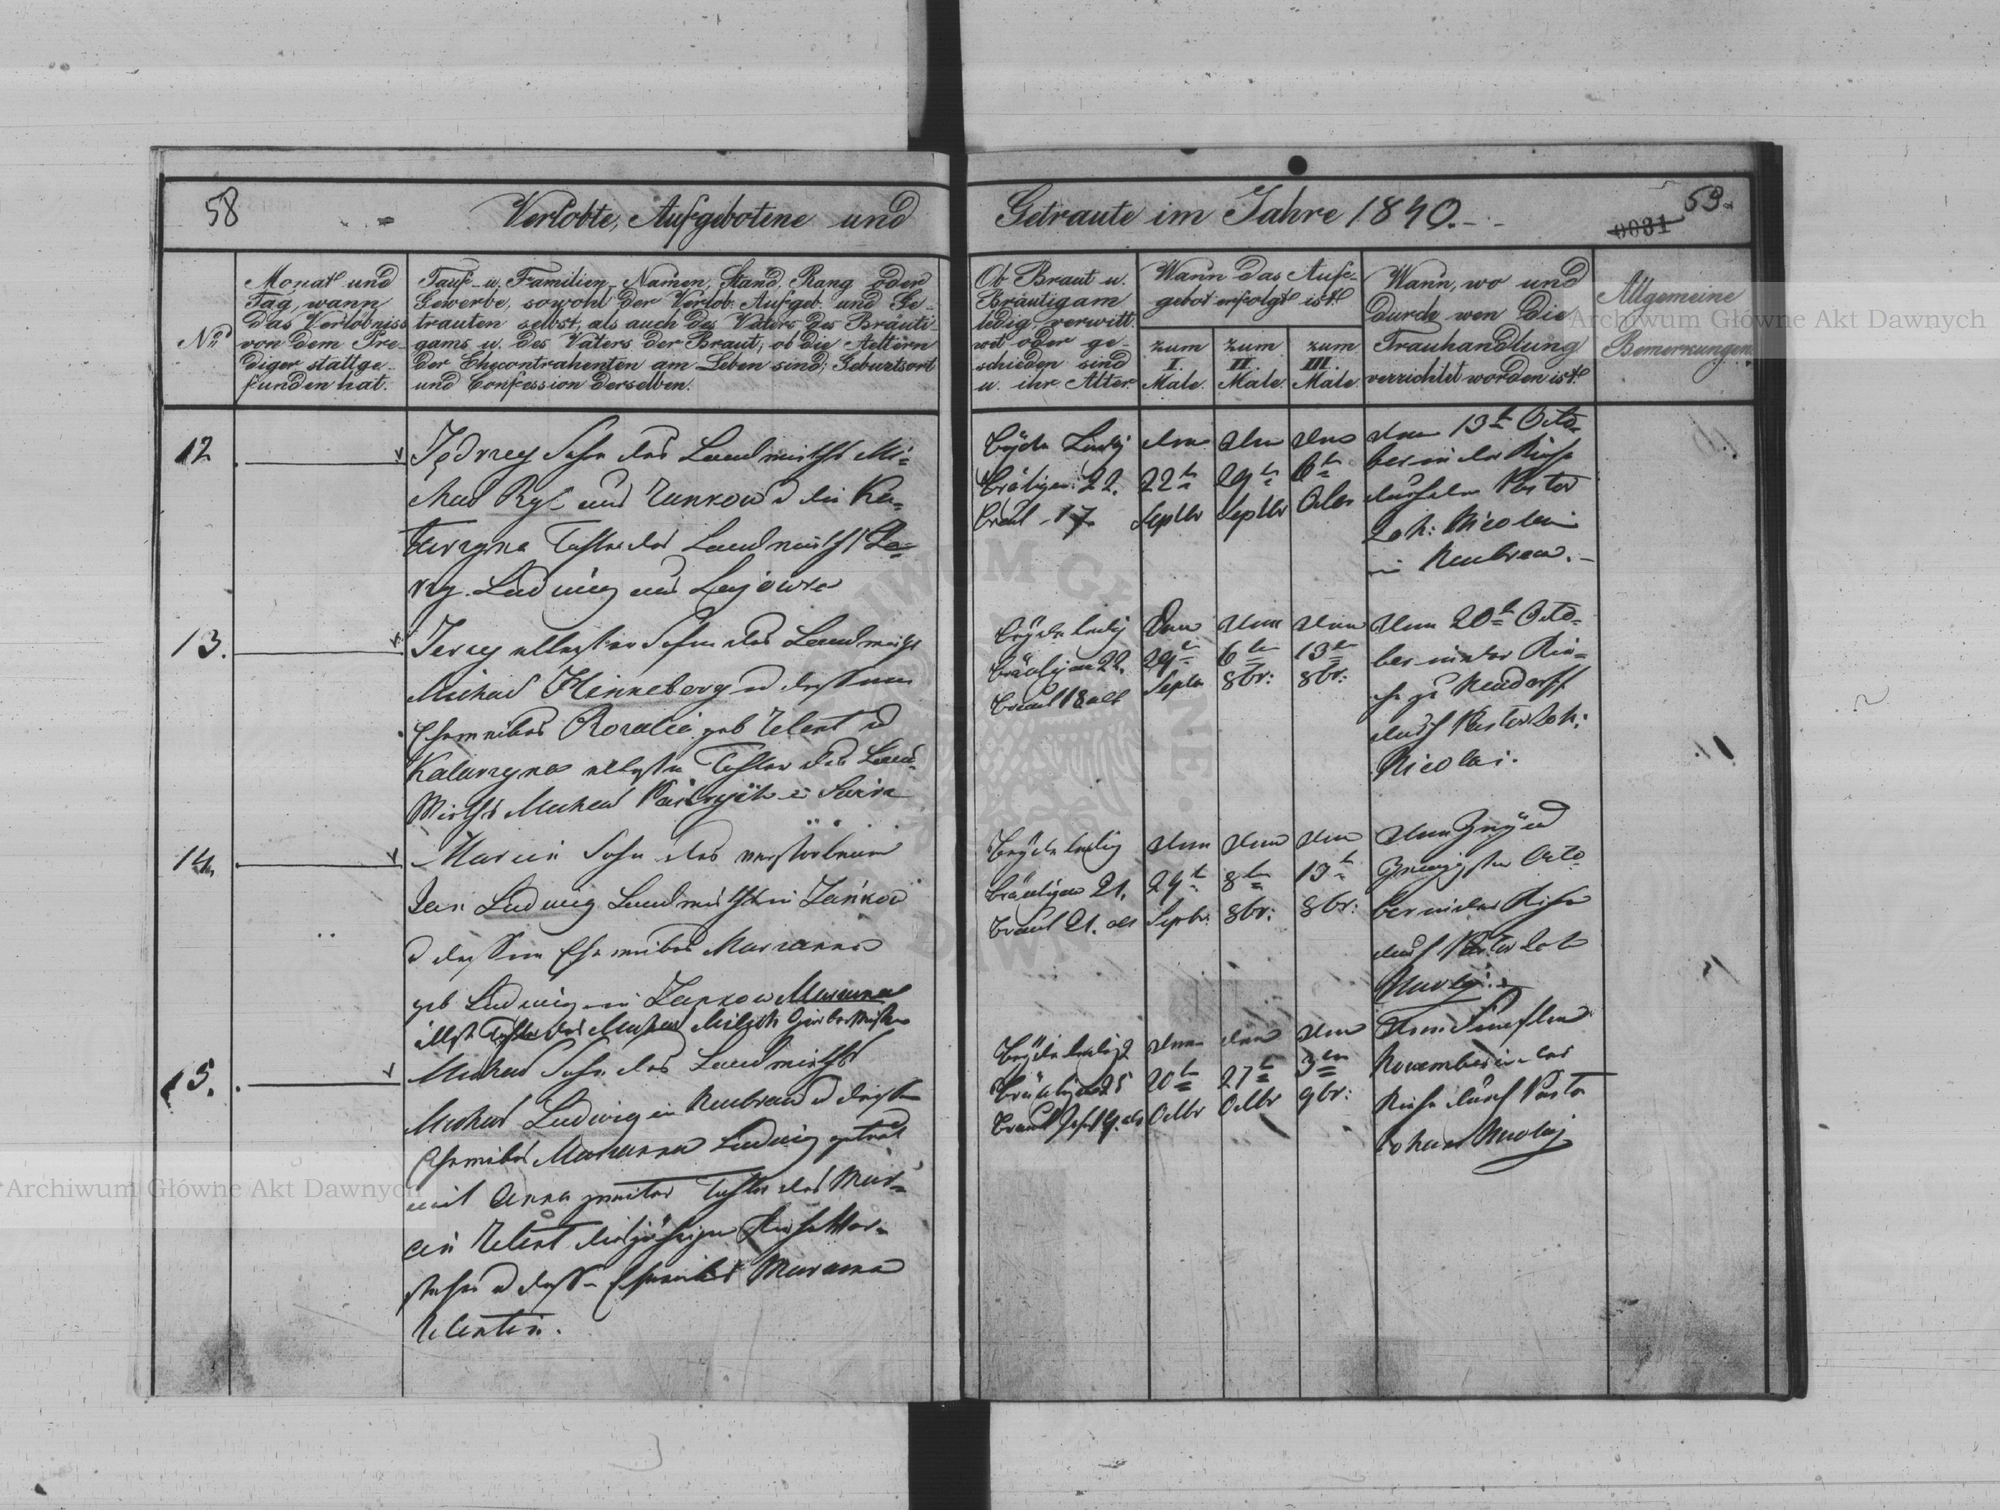 58
Verlobte, Aufgebotene und
Getraute im Jahre 1840.
59.
0031
No
Monat und
Tag, wann
das Verlöbniss
von dem Pre-
diger stattge-
funden hat.
Tauf- u. Familien-Namen, Stand, Rang oder
Gewerbe, sowohl der Verlob. Aufgeb. und Ge-
trauten selbst, als auch des Vaters des Bräuti-
gams u. des Vaters der Braut; ob die Aeltern
der Ehecontrahenten am Leben sind; Geburtsort
und Confession derselben.
Ob Braut u.
Bräutigam
ledig, verwitt-
wet oder ge-
schieden sind
u. ihr Alter.
Wann das Auf-
gebot erfolgt ist
zum
I.
Male.
zum
II.
Male.
zum
III.
Male
Wann, wo und
durch wen die
Trauhandlung
verrichtet worden ist.
Allgemeine
Bemerkungen.
12
Jędrzey Sohn des Landwirths Mi-
chael und d die Ka-
tarzyna Tochter des Landwirths
Ludwig
Beyde Ledig
Bräutigam 22.
Braut 17.
den
22t
Septbr
den
29t
Septbr
den
6t
den 13t Octo-
ber in der Kirche
durch den Pastor
Joh: Nicolai
in
13.
Jerzy ältester Sohn des Landwirths
Michael Hinneberg d dessen
Eheweibes Rozalie geb Zelent d
Katarzyna älteste Tochter des Land-
Wirths Michael
Beyde ledig
Bräutigam 22.
Braut 18 alt
Den
29t
Septbr
den
6te
8br:
den
13te
8br:
den 20t Octo-
ber in der Kir-
che zu Neudorff
durch Pastor Joh:
Nicolai.
14.
Marcin Sohn des verstorbenen
Jan Ludwig Landwirths in
d dessen Eheweibes Marianna
geb Ludwig in Marianna
ältste Tochter des Michael
Beyde ledig
Bräutigam 21.
Braut 21. alt
den
29t
Septbr:
den
8te
8br:
den
13t
8br:
den
zwanzigsten Octo-
ber in der Kirche
durch Pastor Joh
15.
Michael Sohn des Landwirths
Michael Ludwig in d dessen
Eheweibes Marianna Ludwig getraut
mit Anna zweiter Tochter des Mar-
cin Zelent diesjährigen Kirchen Vor-
steher d dessen Eheweibes Marianna
Zelentin.
Beyde ledig
Bräutigam 25
Braut
den
20t
Octbr
den
27t
Octbr
den
3ten
9br:
den Fünften
November in der
Kirche durch Pastor
Johann
Archiwum Główne Akt Dawnych
Archiwum Główne Akt Dawnych